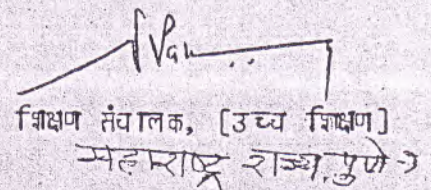 शिक्षण संचालक, [उच्च शिक्षण]
महाराष्ट्र राज्य, पुणे-१